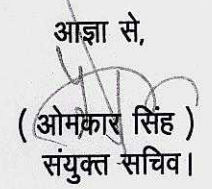 आज्ञा से,
( ओमकार सिंह )
संयुक्त सचिव।